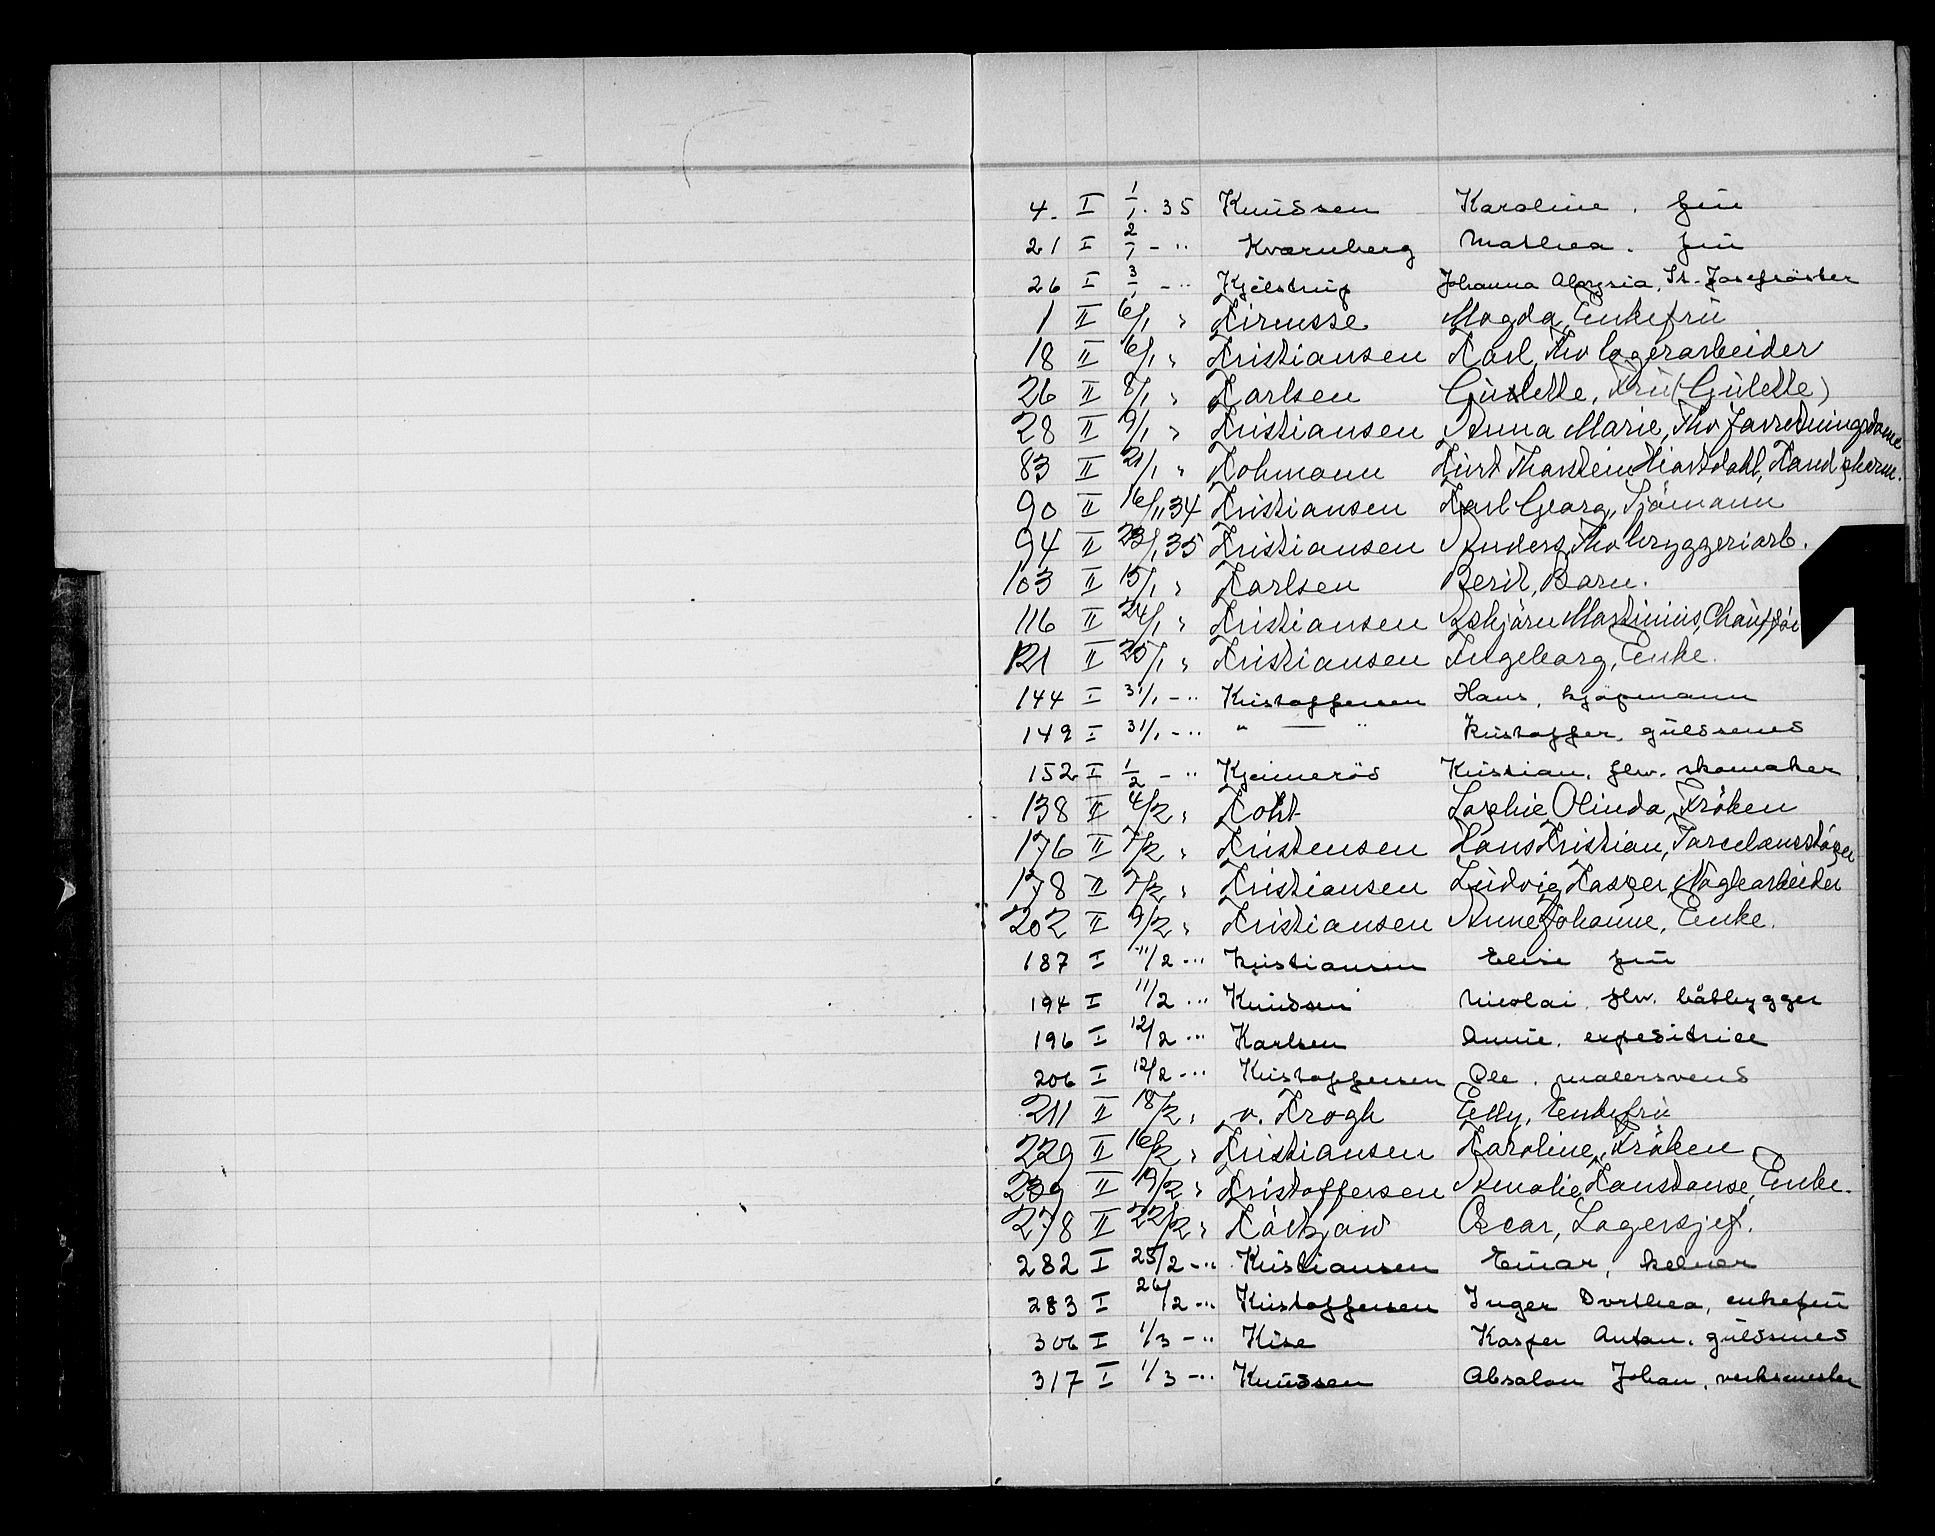 4. I 1/1. 35 Knudsen Karoline. fru
21 I 2/1 - " Kvarnberg Mathea. fru
26 I 3/1 - " Kjelstrup Johanna Aloysia, St. Josefsöster
1 II 6/1 " Kirnesse Magda, Enkefru
18 II 6/1 " Kristiansen Karl, Fhv lagerarbeider
26 II 8/1 " Karlsen Gulette, Fru (Gulette)
28 II 9/1 " Kristiansen Anna Marie, Fhv forretningsdame
83 II 21/1 " Kohmann Kurt Thorstein Hiortdahl, Kand pharm.
90 II 16/11 34 Kristiansen Karl Georg, Sjömann
94 II 23/1 35 Kristiansen Anders, Fhv bryggeriarb.
103 II 15/1 " Karlsen Berit, Barn.
116 II 24/1 " Kristiansen Asbjörn Martinius, Chaufför
121 II 25/1 " Kristiansen Ingeborg, Enke.
144 I 31/1 - " Kristoffersen Hans, kjöpmann
149 I 31/1 - " " — " Kristoffer, guldsmed
152 I 1/2 - " Kjeimeröd Kristian, fhv. skomaker
138 II 4/2 " Koht Sophie Olinda, Fröken
176 II 7/2 " Kristensen Hans Kristian,
178 II 7/2 " Kristiansen Ludvig Kasper, Möglearbeider
202 II 9/2 " Kristiansen Anne Johanne, Enke.
187 I 11/2 - " Kristiansen Elise fru
194 I 11/2 - " Knudsen Nicolai, fhv. båtbygger
196 I 12/2 - " Karlsen Annie, expeditrice
206 I 12/2 - " Kristoffersen Ole, malersvend
211 II 18/2 " v. Krogh Elly, Enkefru
229 II 16/2 " Kristiansen Karoline, Fröken
239 II 19/2 " Kristoffersen Amalie Konstanse, Enke.
278 II 22/2 " Oscar, Lagersjef.
282 I 25/2 - " Kristiansen Einar, kelner
283 I 26/2 - " Kristoffersen Inger Dorthea, enkefru
306 I 1/3 - " Kise Kasper Anton, guldsmed
317 I 1/3 - " Knudsen Absalon Johan, verksmester